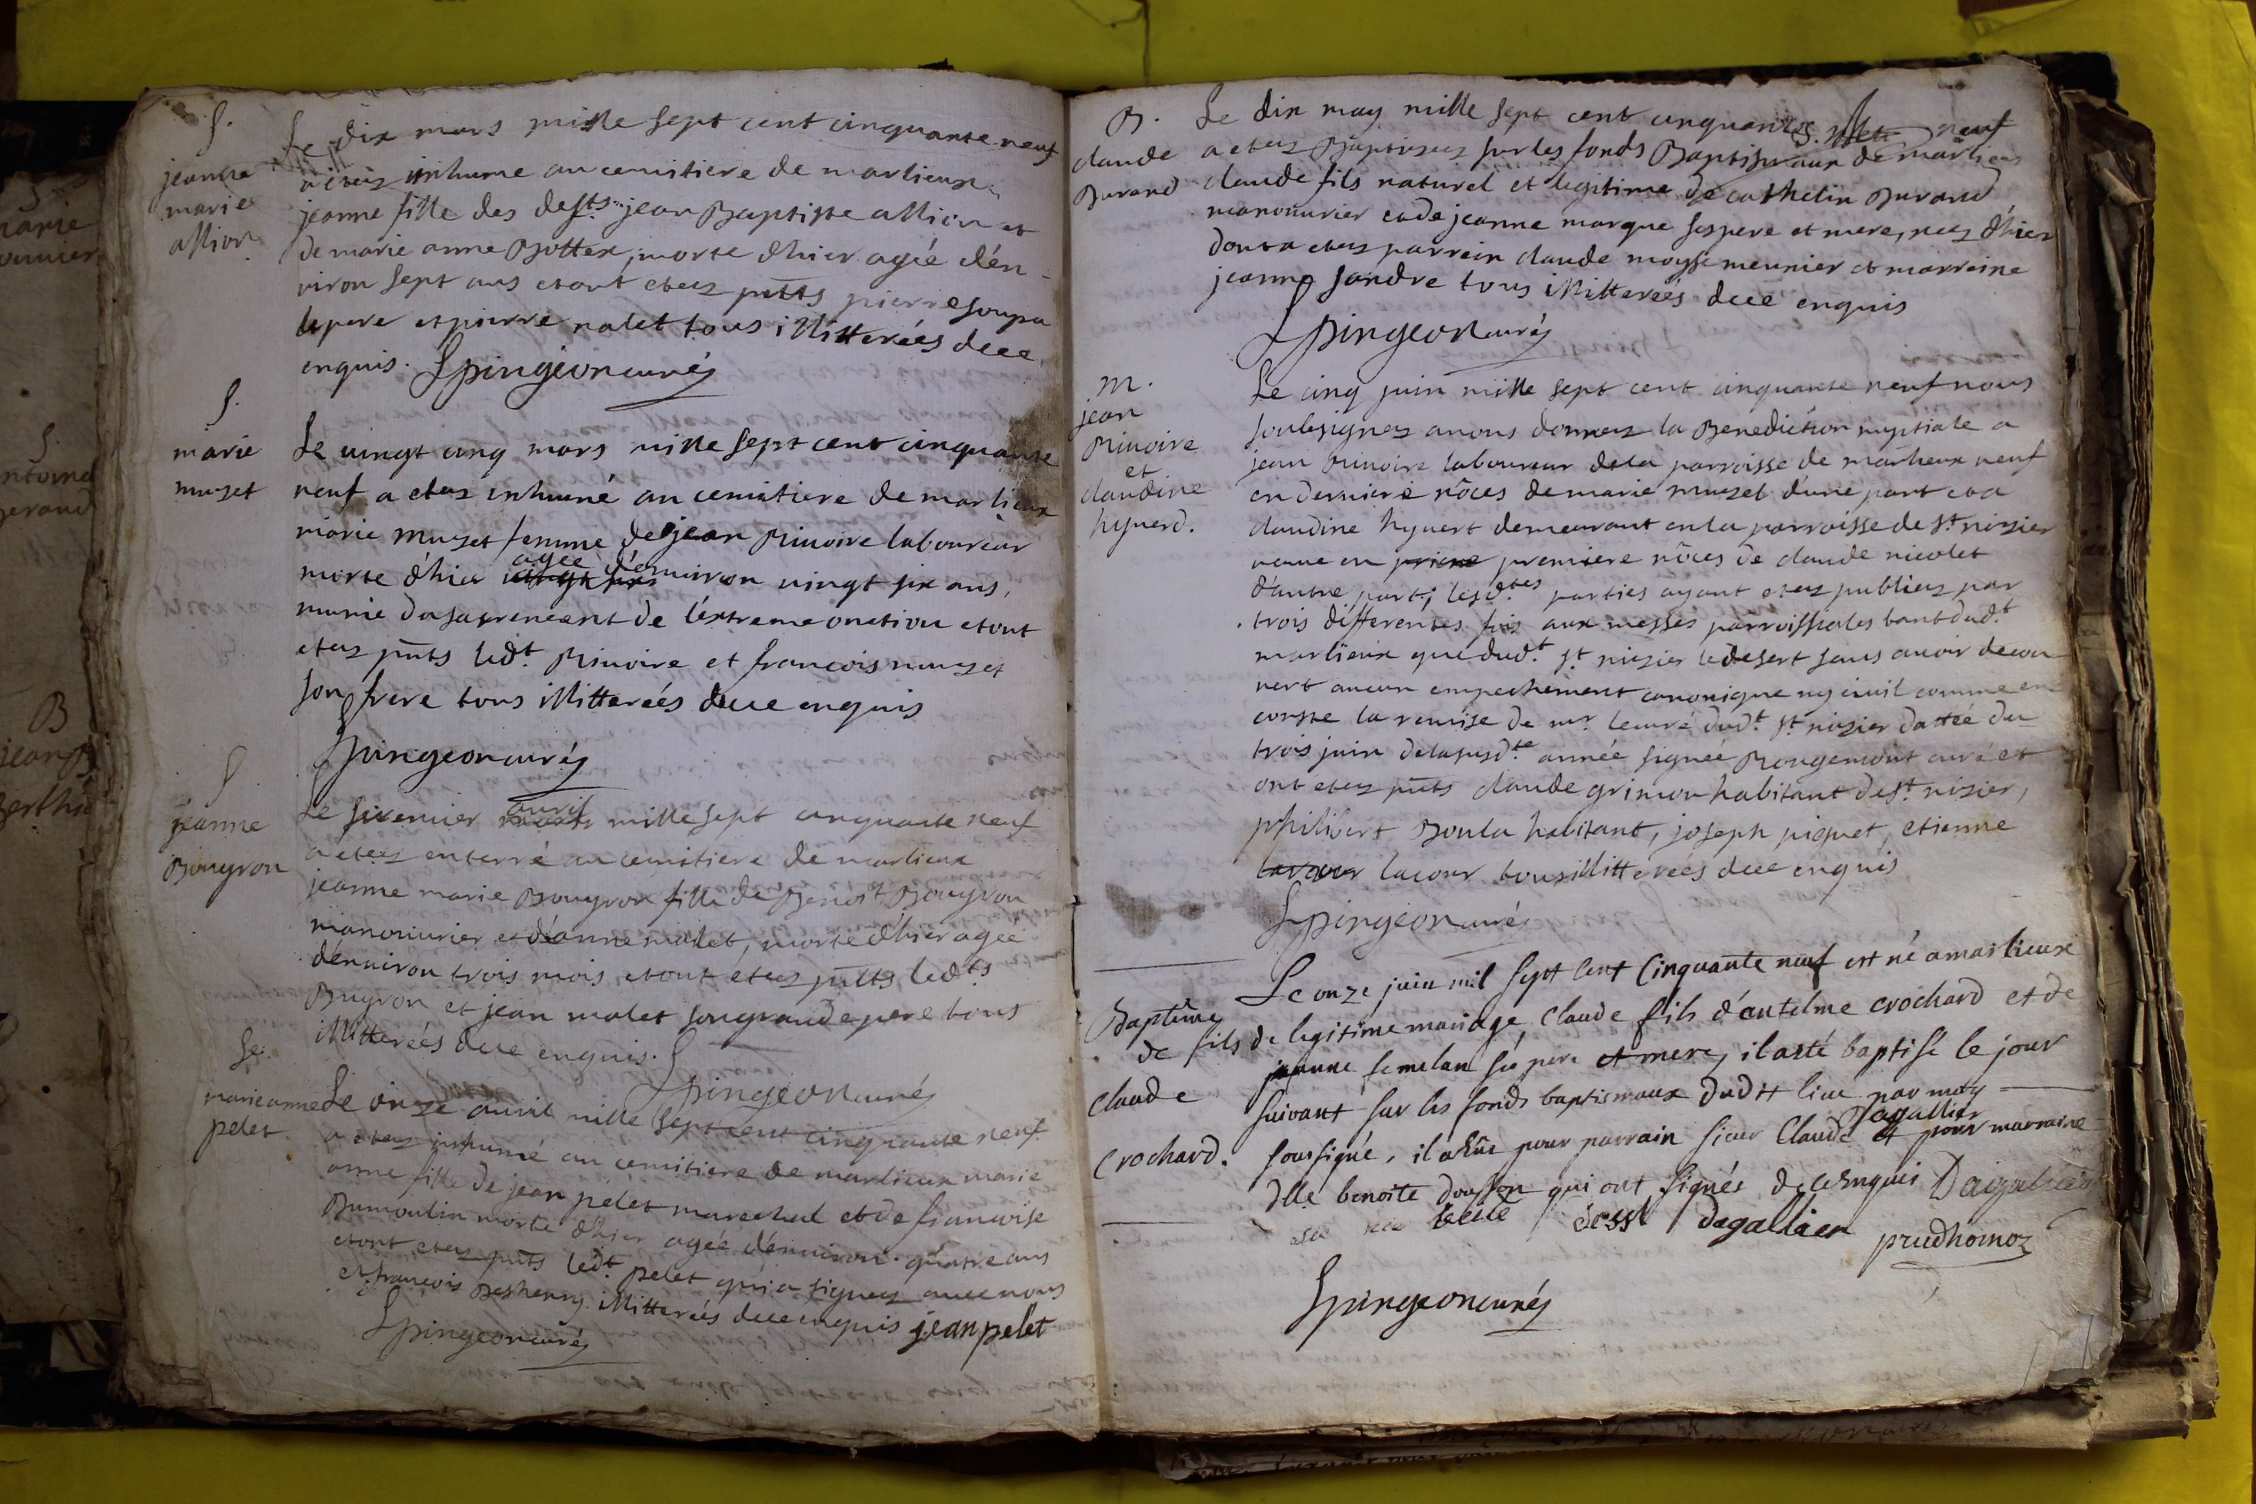 S.
jeanne
marie
allion
Le dix mars mille sept cent cinquante neuf
a etez inhume au cemitiere de marlieux
jeanne fille des defts. jean Baptiste allion et
de marie anne Bottex, morte d'hier agée d'én-
viron sept ans etont etez pnts pierre
le pere et pierre nalet tous illitterées dece
enquis. Spingeon curéz
S.
marie
muzet
Le vingt cinq mars mille sept cent cinquante
neuf a etez inhumé au cemitiere de marlieux
marie muzet femme de jean Rivoire laboureur
morte d'hier agée d'environ vingt six ans,
munie du sacrement de l'éxtreme onction etont
etez pnts led.t Rivoire et françois muzet
son frere tous illitterées dece enquis
Spingeon curéz
S
jeanne
Bouyron
Le avril mille sept cinquante neuf
a etez enterré au cemitiere de marlieux
jeanne marie Bouyron fille de Benoit Bouyron
manouvrier et d'anne malet, morte d'hier agée
d'énviron trois mois etont étez pnts led.ts
Buyron et jean malet son grande pere tous
illitterées dece enquis.
Spingeon curéz
Se.
marie anne
pelet
Le onze avril mille sept cent cinquante neuf
a etez inhumé au cemitiere de marlieux marie
anne fille de jean pelet marechal et de francoise
Dumoulin morte d'hier agée d'énviron quatre ans
etont etez pnts led.t pelet qui a signez avec nous
et françois illitterées dece enquis jean pelet
Spingeon curéz
B.
claude
Durand
Le dix may mille sept cent cinquante neuf
a etez Baptisez sur les fonds Baptismaux de marlieux
claude fils naturel et legitime de cathelin Durand
manouvrier et de jeanne marque ses pere et mere, nez d'hier
dont a etez parrein claude moyse meunier et marreine
jeanne sandre tous illitterées dece enquis
Spingeon curéz
m.
jean
Rivoire
et
claudine
hyverd.
Le cinq juin mille sept cent cinquante neuf nous
soubsignez avons donnez la Benediction nuptiale a
jean Rivoire laboureur dela parroisse de marlieux veuf
en derniere nôces de marie muzet d'une part et a
claudine hyvert demeurant en la parroisse de st. nizier
veuve en premiere nôces de claude nicolet
d'autre part; lesd.tes parties ayant etez publiez par
trois differentes fois aux messes parroissiales tant dud.t
marlieux que dud.t st. nizier le desert sans avoir decou
vert aucun empechement canonique ny civil comme en
conste la remise de mr. le curé dud.t st. nizier dattée du
trois juin de la susd.te année signée Rougemont curé et
ont etez pnts claude grimou habitant de st. nizier,
philibert Boula habitant, joseph piquet, etienne
lacour tous illitterées dece enquis
Spingeon curéz
Baptême
de fils
claude
Crochard.
Le onze juin mil sept cent Cinquante neuf est né a marlieux
de legitime mariage Claude fils d'antelme crochard et de
jeanne semelan ses pere et mere, il a eté baptisé le jour
suivant sur les fonds baptismaux dudit lieu par moy
soussigné, il a eûe pour parrain sieur Claude Dagallier et pour marraine
Dlle benoite qui ont signés de ce Enquis
dagallier prudhomoz
Spingeon curéz